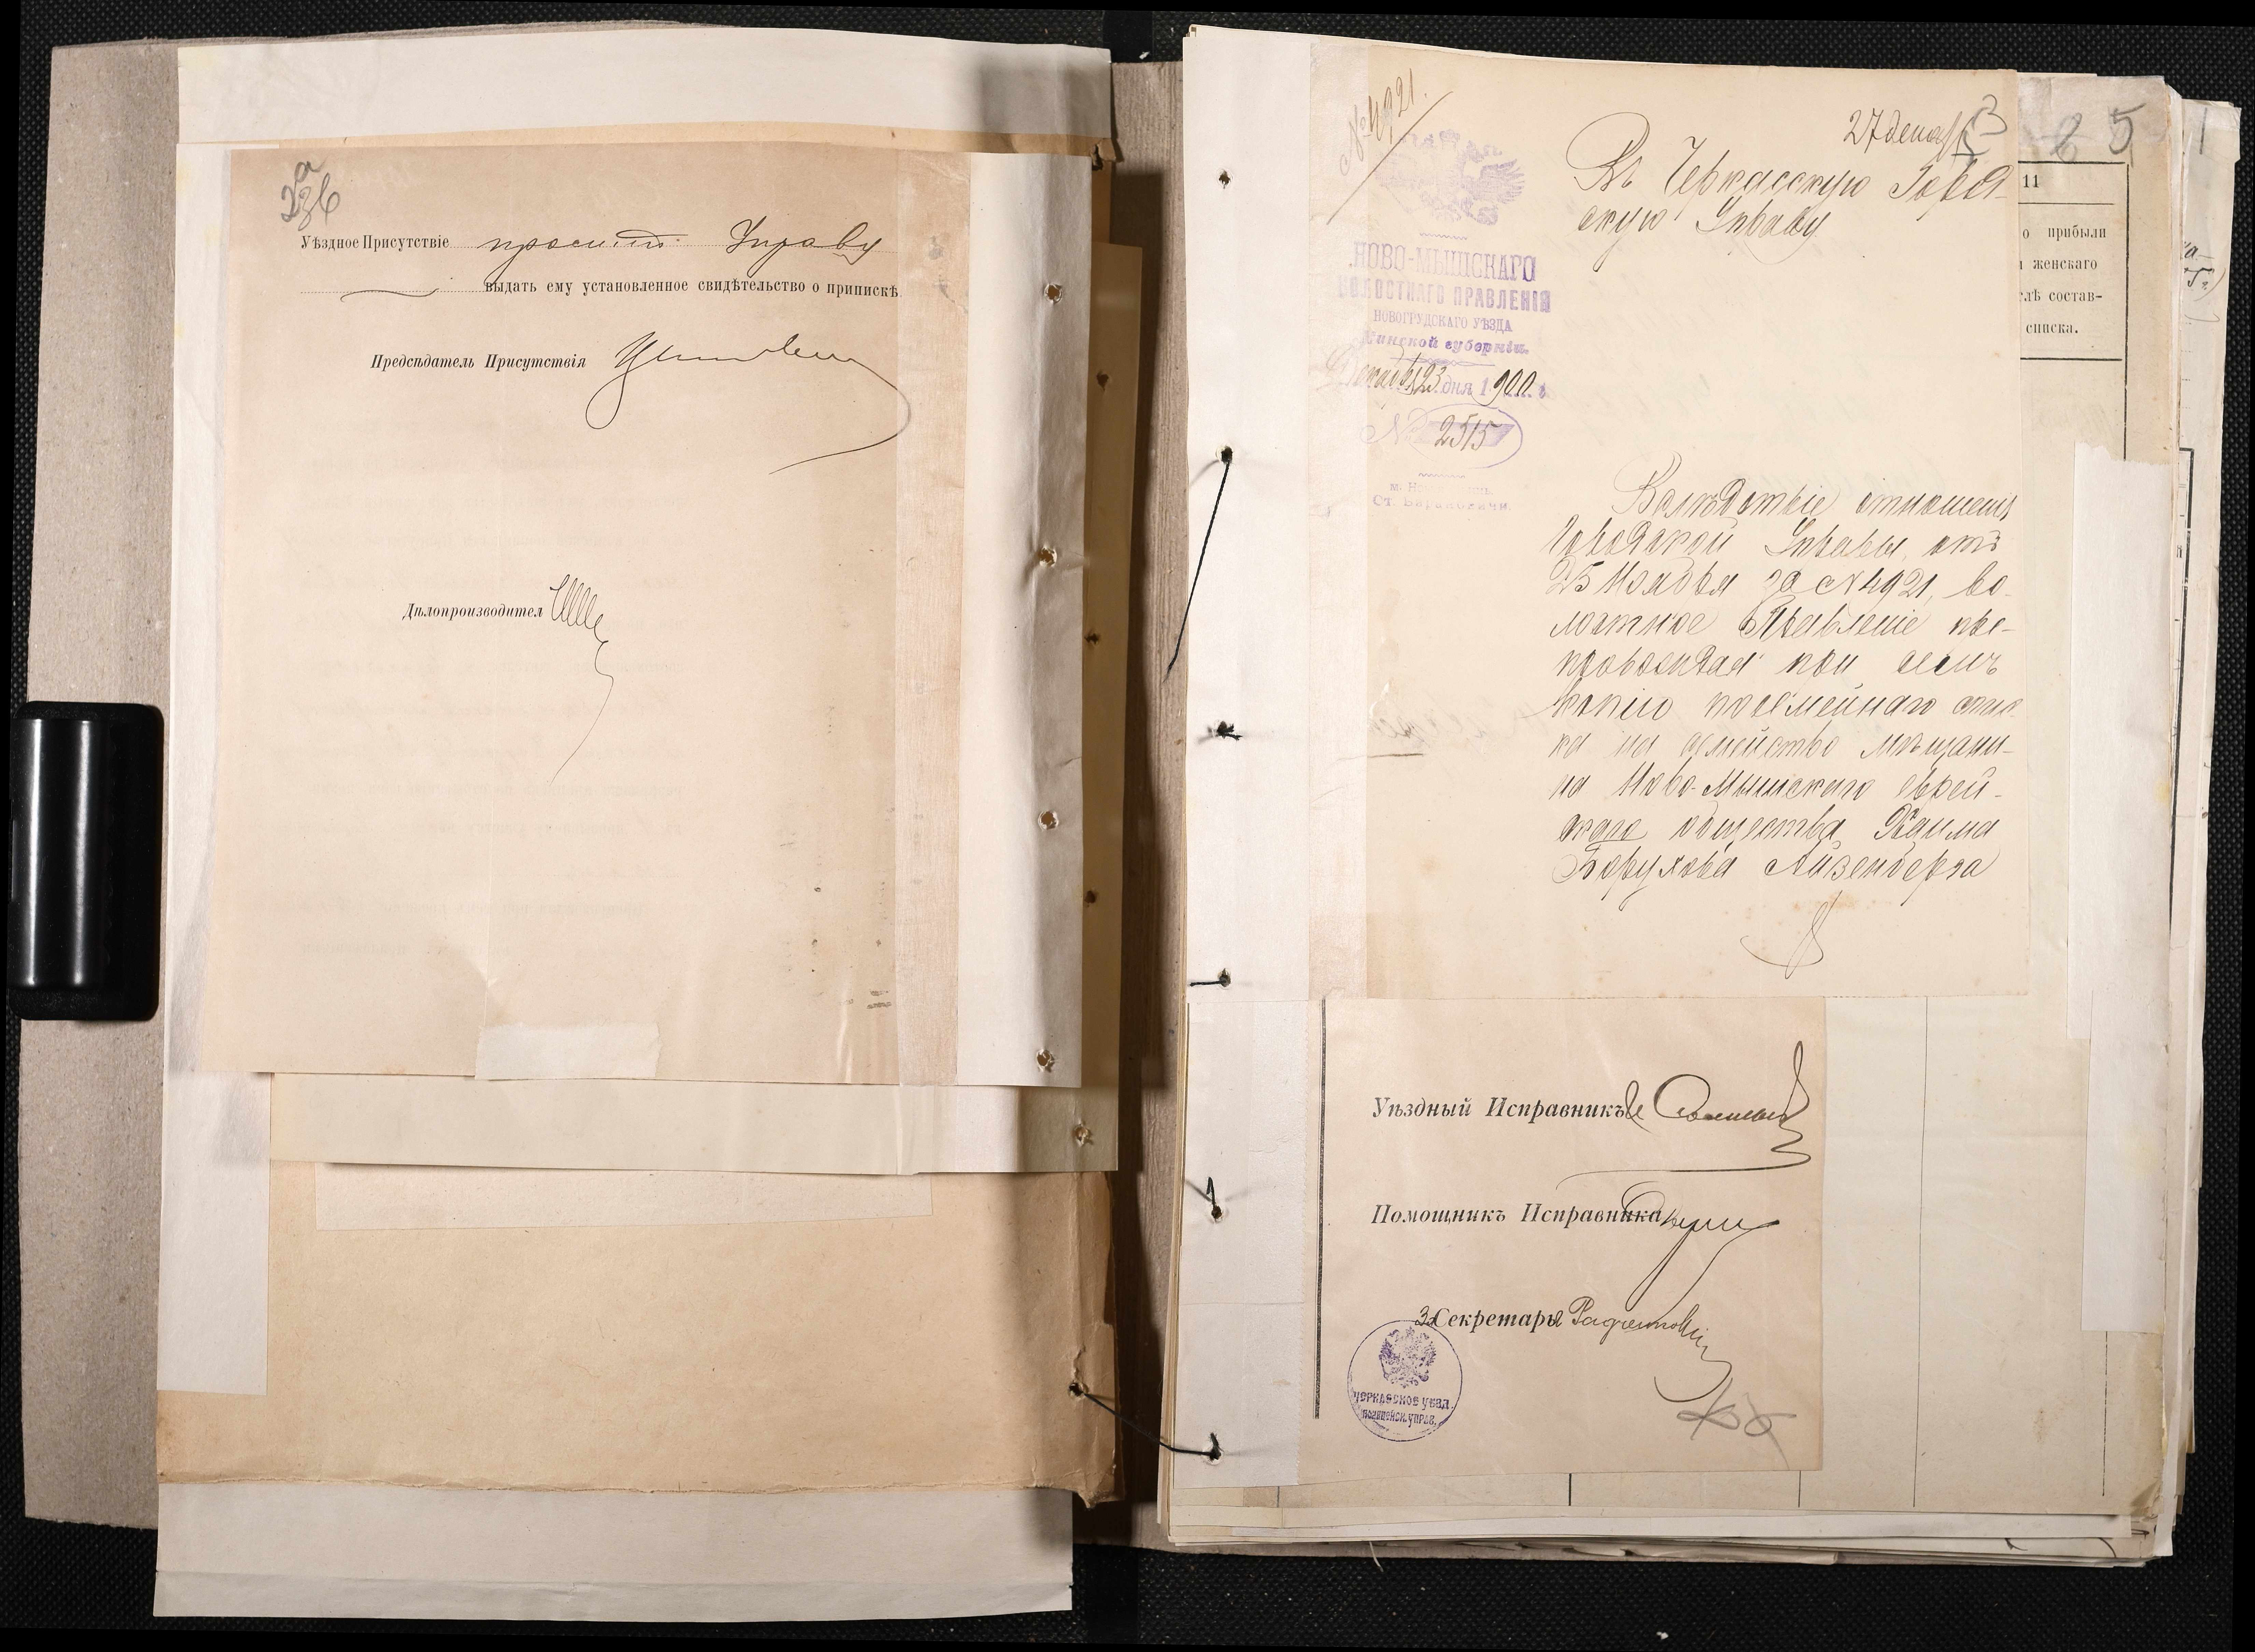 2а
36
Уѣздное Присутствіе проситъ Управу
выдать ему установленное свидѣтельство о припискѣ
Предсѣдатель Присутствія
Дѣлопроизводител
№ 4921.
27 декаб
3
5
Въ Черкасскую Город-
скую Управу
НОВО-МЫШСКАГО
ВОЛОСТНАГО ПРАВЛЕНІЯ
НОВОГРУДСКАГО УѢЗДА
Минской губерніи.
Декабря 23 дня 1900 г.
№ 2515
Ст. Барановичи.
Вслѣдствіе отношенія
Городской Управы отъ
25 Ноября за № 4921, во-
лостное Правленіе пре-
провождая при семъ
копію посемейнаго спис-
ка на семейство мѣщани-
на Ново-Мышскаго еврей-
скаго общества Хаима
Борухова Айзенберга
11
о прибыли
женскаго
слѣ состав-
списка.
Уѣздный Исправникъ
Помощникъ Исправника
За Секретаря
ЧЕРКАССКОЕ УѢЗД.
ПОЛИЦЕЙСК. УПРАВ.